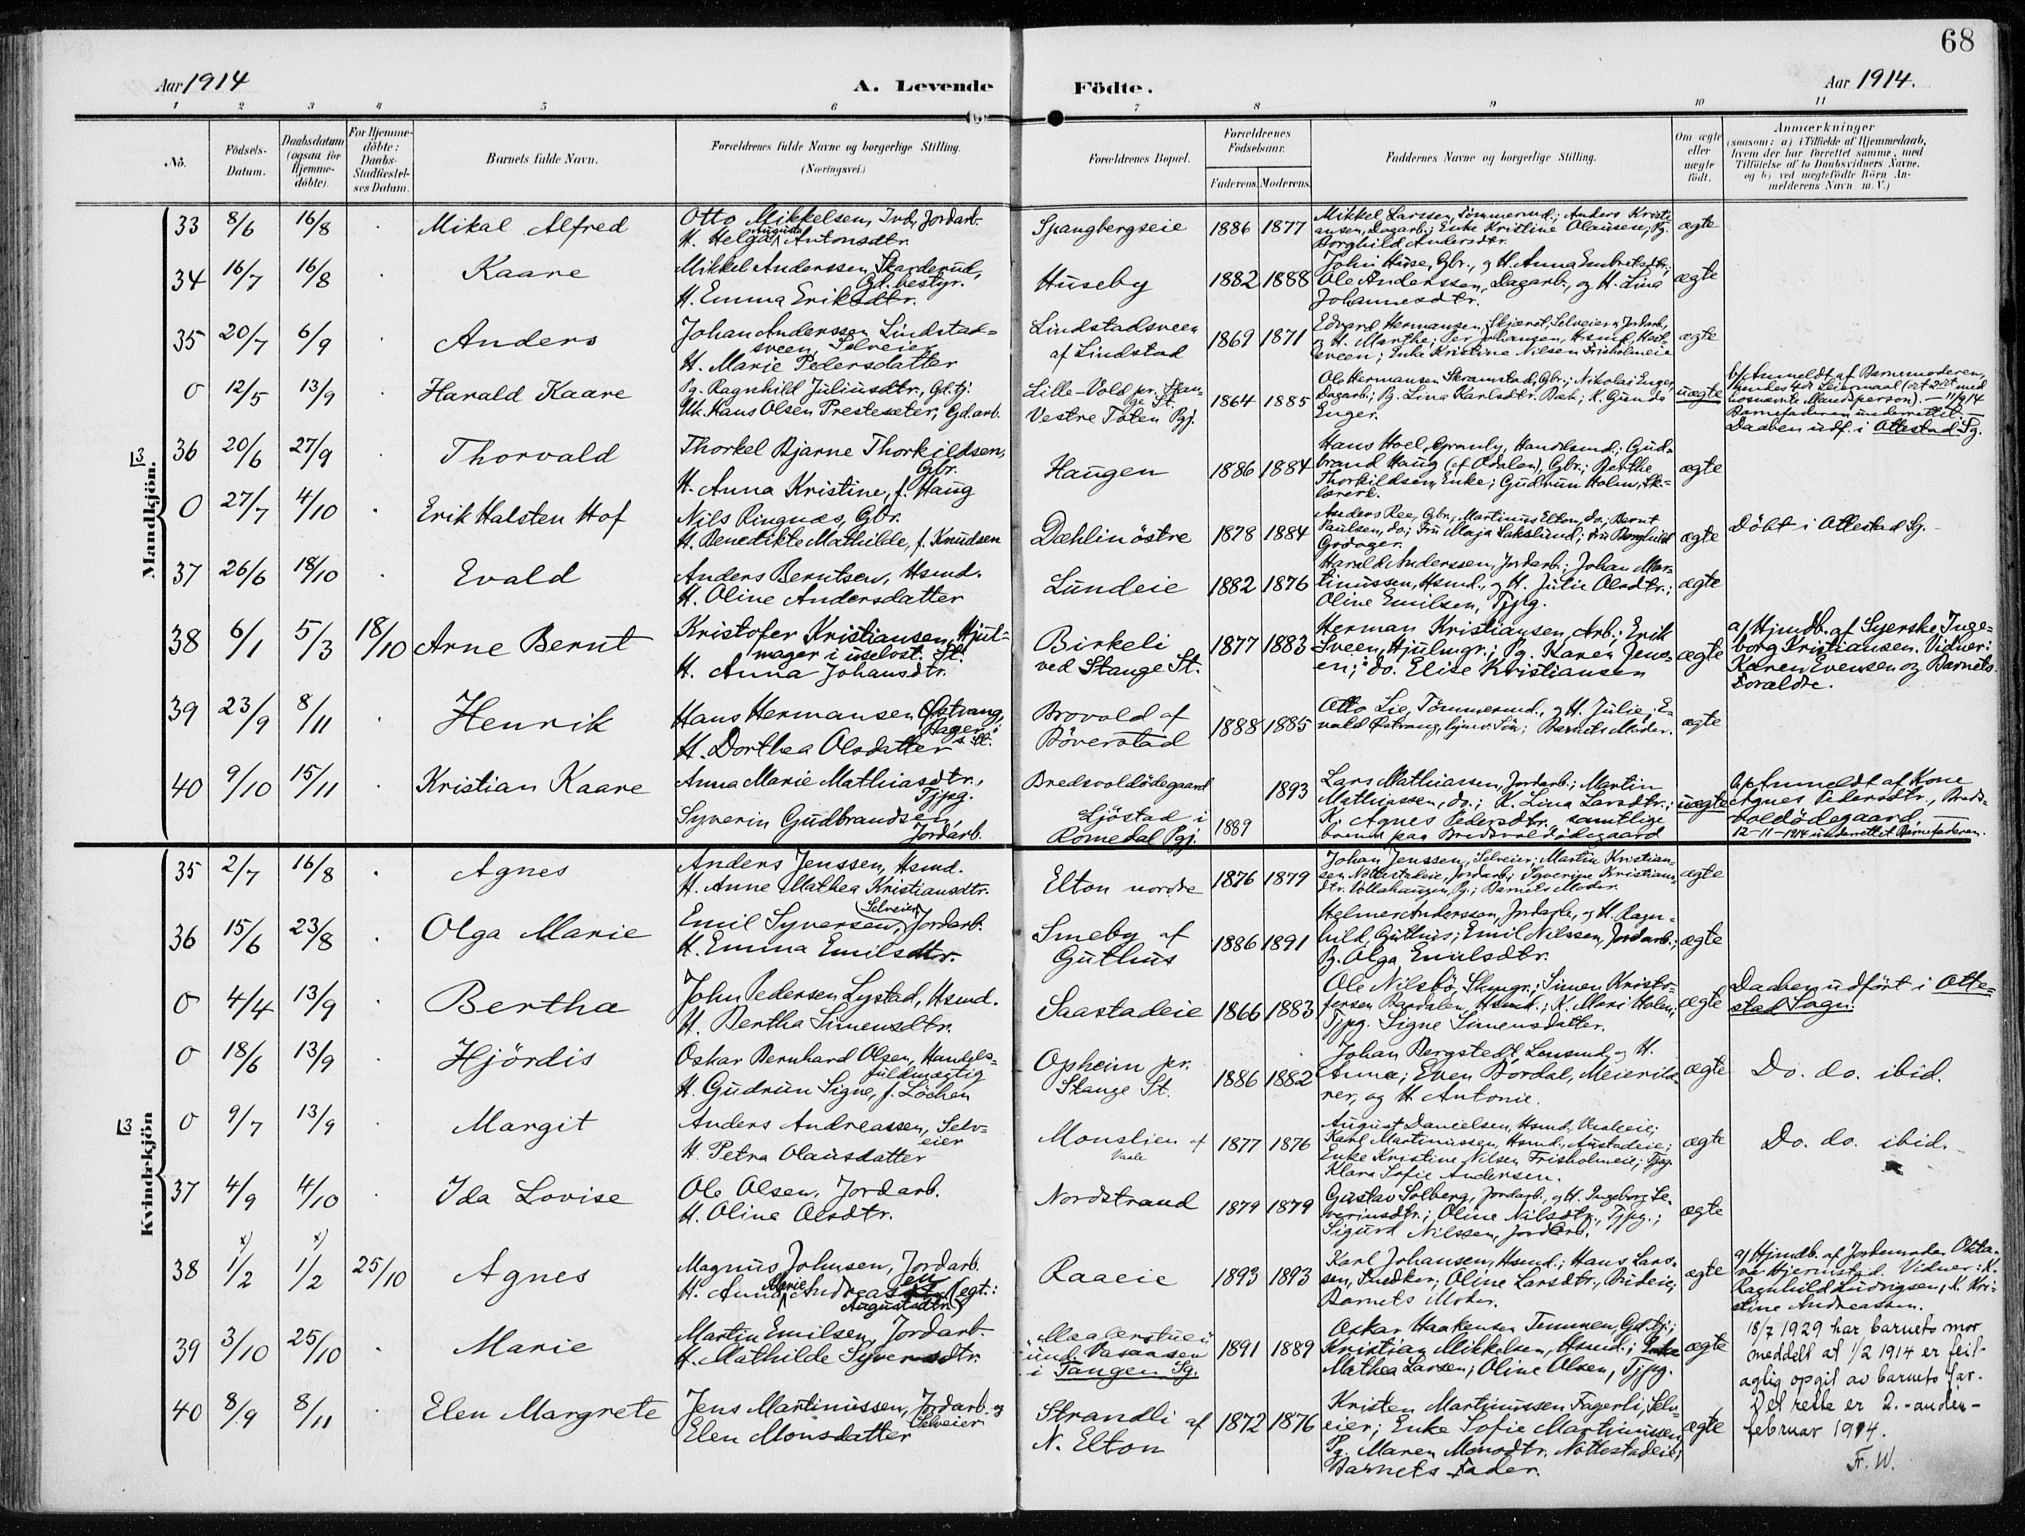 68
Aar 1914
A. Levende
Födte.
Aar 1914.
1 2 3 4 5 6 7 8 9 10 11
No.
Födsels-Datum.
Daabsdatum (ogsaa for Hjemmedöbte).
For Hjemmedöbte: Daabs-Stadfæstelses Datum.
Barnets fulde Navn.
Forældrenes fulde Navne og borgerlige Stilling. (Næringsvei.)
Forældrenes Bopæl.
Forældrenes Födselsaar.
Faderens. Moderens.
Faddernes Navne og borgerlige Stilling.
Om ægte eller uægte födt.
Anmærkninger
(saasom: a) i Tilfælde af Hjemmedaab, hvem der har forrettet samme, med Tilföielse af to Daabsvidners Navne, og b) ved uægtefödte Börn Anmelderens Navn m. V.)
Mandkjön.
33 8/6 16/8 Mikal Alfred
Otto Mikkelsen, Ind., Jordarb.
H. Helga Augusta Antonsdtr.
Spangbergseie 1886 1877
Mikkel Larssen, Tömmermd.; Anders Kristi-
ansen, Dagarb.; Enke Kristine Olausen; Pg.
Borghild Andersdtr.
ægte
34 16/7 16/8 Kaare
Mikkel Anderssen Skarderud,
Gd.bestyr.
H. Emma Eriksdtr.
Huseby 1882 1888
John Huse, Gbr., og H. Anna Embretsdtr.;
Ole Anderssen, Dagarb., og H. Lina
Johannesdtr.
ægte
35 20/7 6/9 Anders
Johan Anderssen Lindstad-
sveen, Selveier
H. Marie Pedersdatter
Lindstadsveen
af Lindstad
1869 1871
Edvard Hermansen, Skjæret, Selveier, Jordarb.,
og H. Marthe; Per Johansen, Hsmd,
sveen; Enke Kristine Nilsen Frisholmeie
ægte
0 12/5 13/9 Harald Kaare
Pg. Ragnhild Juliusdtr., Gd.tj.
Uk. Hans Olsen Presteseter, Gd.arb.
Lille-Vold pr. Stan-
ge St.
Vestre Toten Pgj.
1864 1885
Ole Hermansen Skramstad, Gbr.; Nikolai Enger,
Dagarb.; Pg. Lina Karlsdtr. Bæk; K. Gunda
Enger.
uægte
b/ Anmeldt af Barnemoderen,
hendes 4de Leiermaal (det 2det med
uosnævnte Mandsperson). — 11/9 14
Barnefaderen underrettet. —
Daaben udf. i Ottestad Sg.
36 20/6 27/9 Thorvald
Thorkel Bjarne Thorkildsen,
Gbr.
H. Anna Kristine, f. Haug
Haugen 1886 1884
Hans Hoel, Granly, Handelsmd.; Gud-
brand Haug (af Odalen), Gbr.; Berthe
Thorkildsen, Enke; Gudrun Holm, Sk-
lærerk.
ægte
0 27/7 4/10 Erik Halsten Hof
Nils Ringnæs, Gbr.
H. Benedikte Mathilde, f. Knudsen
Dæhlin östre 1878 1884
Anders Ree, Gbr.; Martinus Elton, do.; Bernt
Paulsen, do.; Fru Maja Sakslund; Fru Borghild
Grdager.
ægte
Döbt i Ottestad Sg.
37 26/6 18/10 Evald
Anders Berntsen, Hsmd.
H. Oline Andersdatter
Lundeie 1882 1876
Harald Anderssen, Jordarb.; Johan Mar-
tinussen, Hsmd., og H. Julie Olsdtr.;
Oline Emilsen, Tjpg.
ægte
38 6/1 5/3 18/10 Arne Bernt
Kristofer Kristiansen, Hjul-
mager i uselvst. St.
H. Anna Johansdtr.
Birkeli
ved Stange St.
1877 1883
Herman Kristiansen, Arb.; Erik
Sveen, Hjulmgr.; Pg. Karen Jens-
en; do. Elise Kristiansen
ægte
a/ Hjmdb. af Syerske Inge-
borg Kristiansen. Vidner:
Karen Evensen og Barnets
Forældre.
39 23/9 8/11 Henrik
Hans Hermansen Östvang,
Bager i
s. St.
H. Dorthea Olsdatter
Brovold af
Böverstad
1888 1885
Otto Lie, Tömmermd., og H. Julie; E-
vald Östvang, hjmv. Sön; Barnets Moder.
ægte
40 9/10 15/11 Kristian Kaare
Anna Marie Mathiasdtr.,
Tjpg.
Syverin Gudbrandsen,
Jordarb.
Bredsvoldödegaard
Ljöstad i
Romedal Pgj.
1889 1893
Lars Mathiasen, Jordarb.; Martin
Mathiassen, do.; K. Lina Larsdtr.;
K. Agnes Pedersdtr., samtlige
boende paa Bredsvoldödegaard
uægte
b/ Anmeldt af Kone
Agnes Pedersdtr., Breds-
voldödegaard, —
12-11-1914 underrettet Barnefaderen.
Kvindekjön
35 2/7 16/8 Agnes
Anders Jenssen, Hsmd.
H. Anne Mathea Kristiansdtr.
Elton nordre 1876 1879
Johan Jenssen, Selveier; Martin Kristian-
sen Nöttestadeie, Jordarb.; Syverine Kristians-
dtr. Vollahaugen, Pg.; Barnets Moder.
ægte
36 15/6 23/8 Olga Marie
Emil Syversen, Selveier, Jordarb.
H. Emma Emilsdtr.
Smeby af
Guthus
1886 1891
Helmer Anderssen, Jordarb., og H. Ragn-
hild, Guthus; Emil Nilssen, Jordarb.;
Pg. Olga Emilsdtr.
ægte
0 4/4 13/9 Bertha
John Pedersen Lystad, Hsmd.
H. Bertha Simensdtr.
Saastadeie 1866 1883
Ole Nilsbö, Skmgr.; Simen Kristo-
fersen Bardalen, Hsmd.; K. Mari Holen;
Tjpg. Signe Simensdatter.
ægte
Daaben udfört i Otte-
stad Sogn.
0 18/6 13/9 Hjördis
Oskar Bernhard Olsen, Handels-
fuldmægtig
H. Gudrun Signe, f. Löchen
Opheim pr.
Stange St.
1886 1882
Johan Bergstedt, Lensmd., og H.
Anna; Even Bordal, Meierild-
rer, og H. Antonie.
ægte
Do. do. ibid.
0 9/7 13/9 Margit
Anders Andreassen, Selv-
eier
H. Petra Olausdatter
Monslien af
Vaale
1877 1876
August Danielsen, Hsmd., Vaaleeie;
Karl Martinussen, Hsmd., Austadeie;
Enke Kristine Nilsen Frisholmeie; Tjpg.
Klara Sofie Andersen.
ægte
Do. do. ibid.
37 4/9 4/10 Ida Lovise
Ole Olsen, Jordarb.
H. Oline Olsdtr.
Nordstrand 1879 1879
Gustav Solberg, Jordarb., og H. Ingeborg Se-
verinsdtr.; Oline Nilsdtr., Tjpg.;
Sigurd Nilssen, Jordarb.
ægte
x) x)
38 1/2 1/2 25/10 Agnes
Magnus Johnsen, Jordarb.
H. Anna Marie Andreassen (egt.:
Augustadtr.)
Raaeie 1893 1893
Karl Johansen, Hsmd.; Hans Lars-
sen, Snedker; Oline Larsdtr., Brideie;
Barnets Moder.
ægte
a/ Hjmdb. af Jordemoder Okta-
via Hjernstad. Vidner: K.
Ragnhild Ludvigsen, K. Kri-
stine Andreassen.
18/7 1929 har barnets mor
meddelt at 1/2 1914 er feil-
aglig opgit av barnets far.
Det rette er 2. - anden -
februar 1914.
Fr. W.
39 3/10 25/10 Marie
Martin Emilsen, Jordarb.
H. Mathilde Syversdtr.
Maalerstuei
und. Vasaasen
i Tangen Sg.
1891 1889
Oskar Haakensen Temmen, Gd.tj.;
Kristian Mikkelsen, Hsmd.; Enke
Mathea Larsen; Oline Olsen, Tjpg.
ægte
40 8/9 8/11 Elen Margrete
Jens Martinussen, Jordarb. og
Selveier
Elen Monsdatter
Strandli af
N. Elton
1872 1876
Kristen Martinussen Fagerli, Selv-
eier; Enke Sofie Martinussen;
Pg. Maren Monsdtr. Nöttestadeie;
Barnets Fader.
ægte